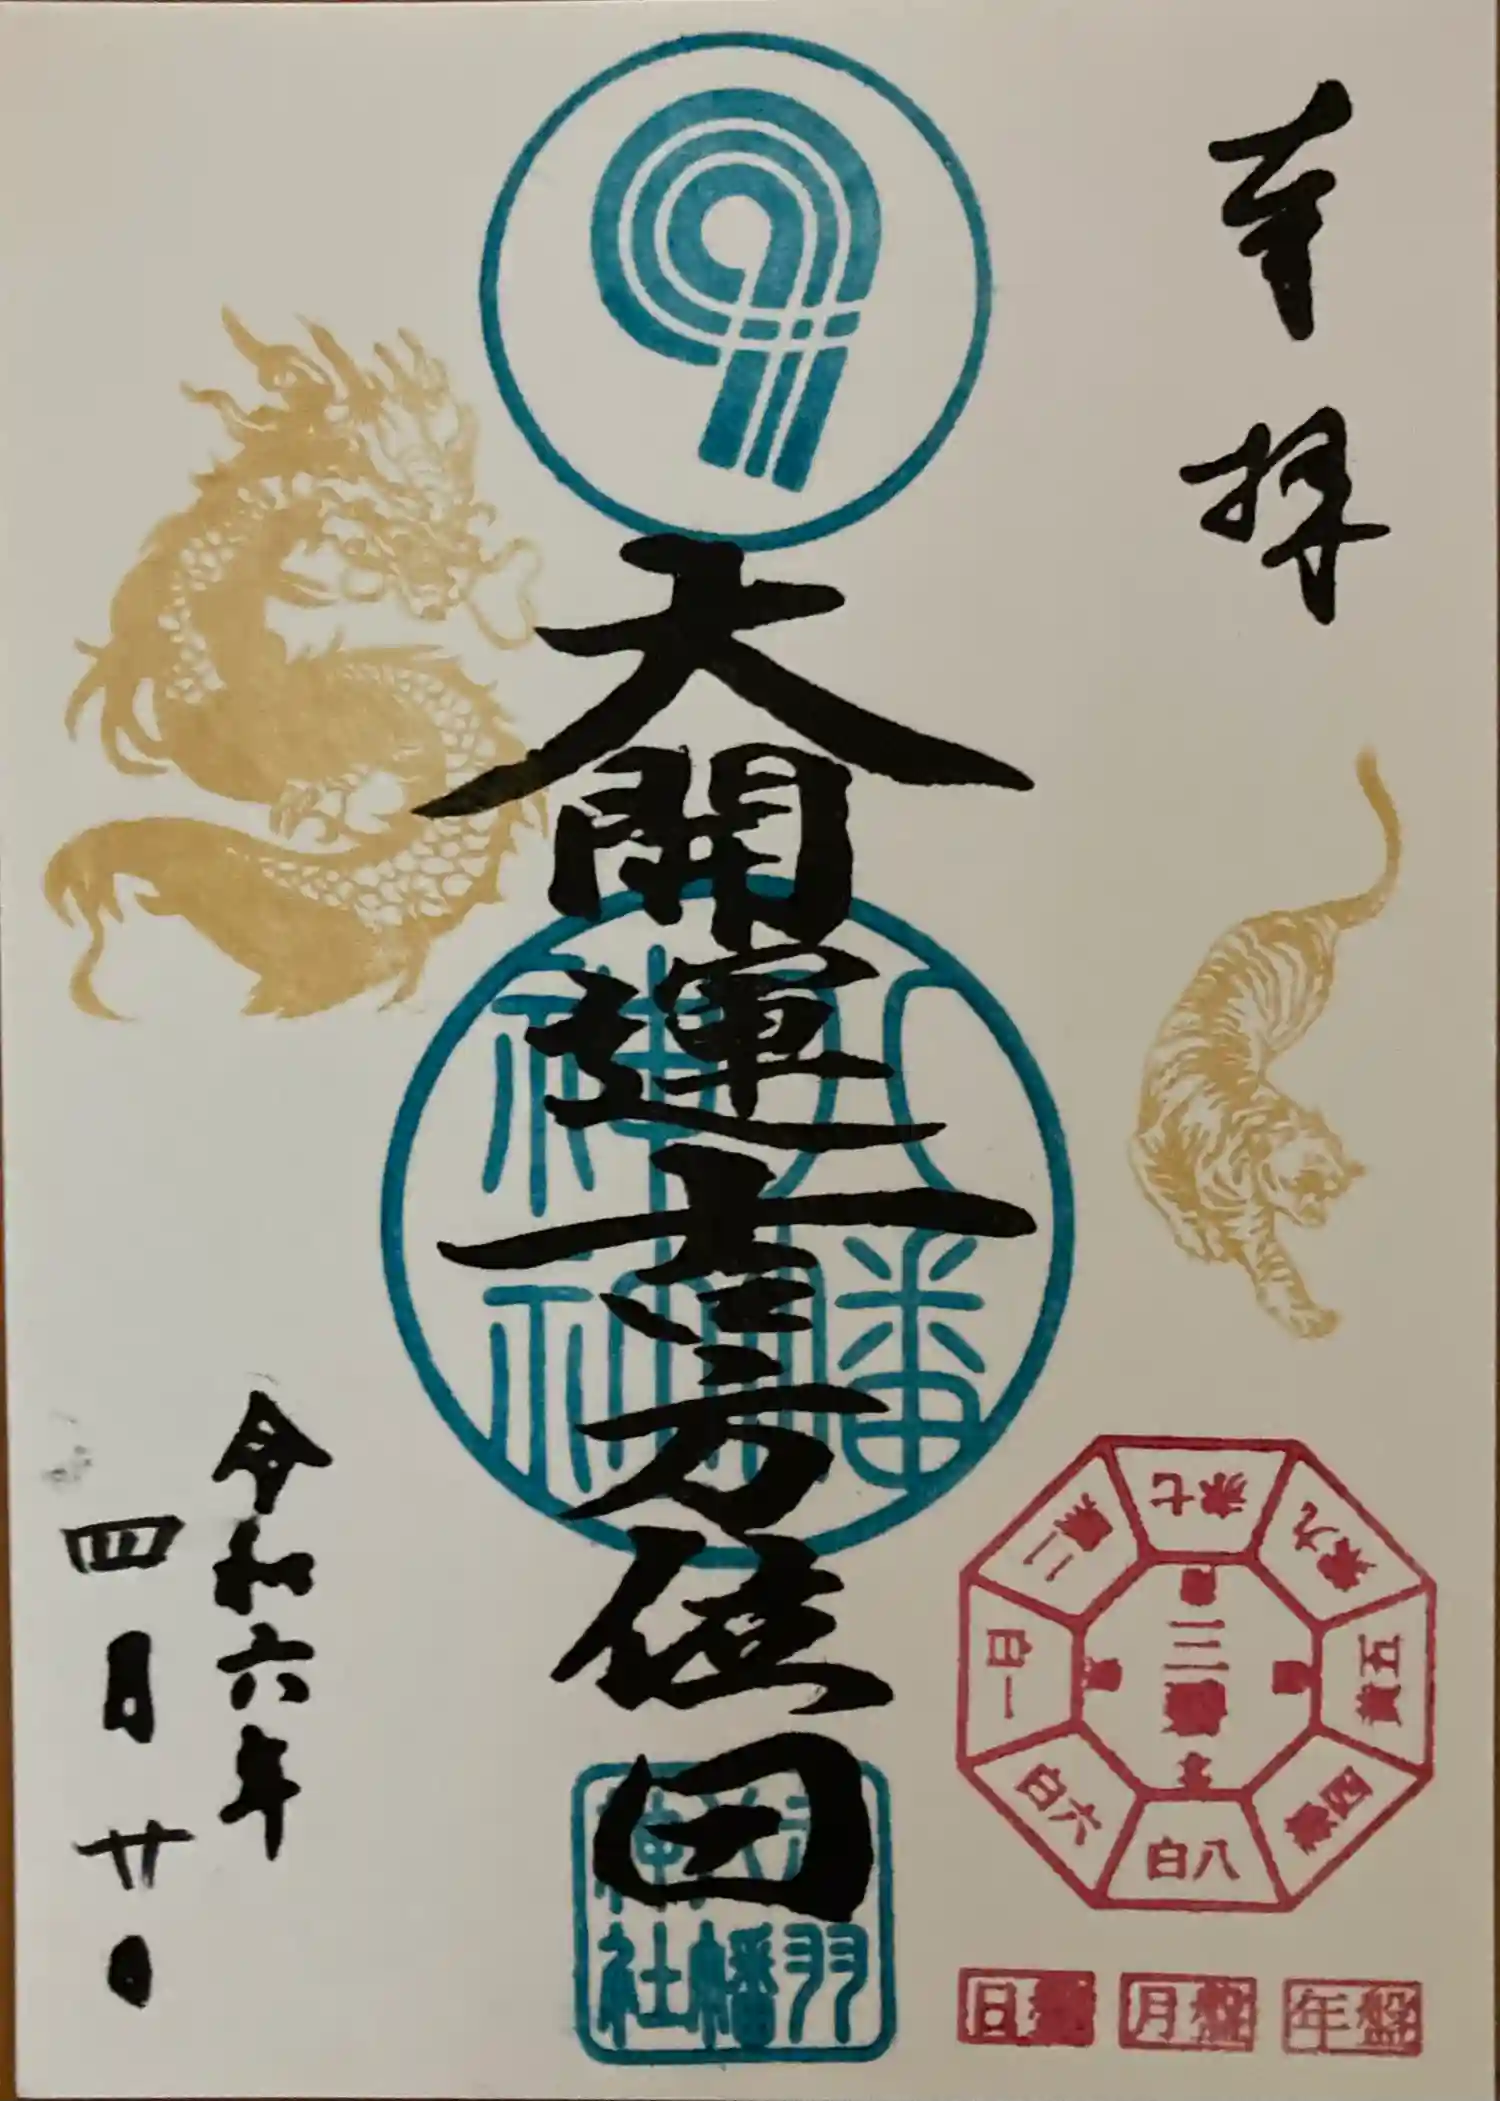 奉拝
大開運吉方位日
八幡
神社
令和六年
四月廿日
七赤
九紫
五黄
四緑
八白
六白
一白
二黒
三碧
羽
八幡
神社
年盤
月盤
日盤